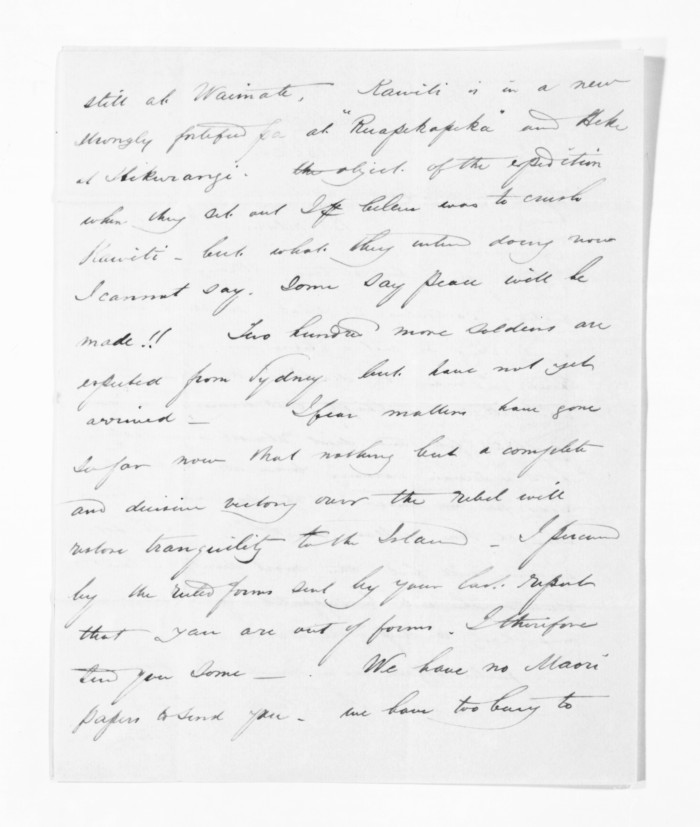 still at Waimate. Kawiti is in a new
strongly fortified pa at "Ruapekapeka" and Heke
at Hikurangi. the object of the expedition
when they set out I believe was to crush
Kawiti - but what they intend doing now
I cannot say. Some say peace will be
made!! Two hundred more soldiers are
expected from Sydney but have not yet
arrived - I fear matters have gone
so far now that nothing but a complete
and decisive victory over the rebel will
restore tranquility to the Island - I perceive
by the ruled forms sent by your last report
that you are out of forms. I therefore
send you some - . We have no Maori
papers to send you - we have too busy to